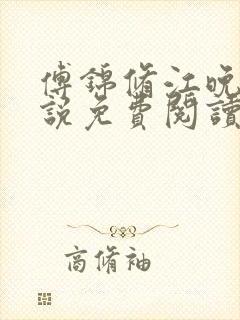 傅錦脩江晚
說免費閱讀
商脩袖